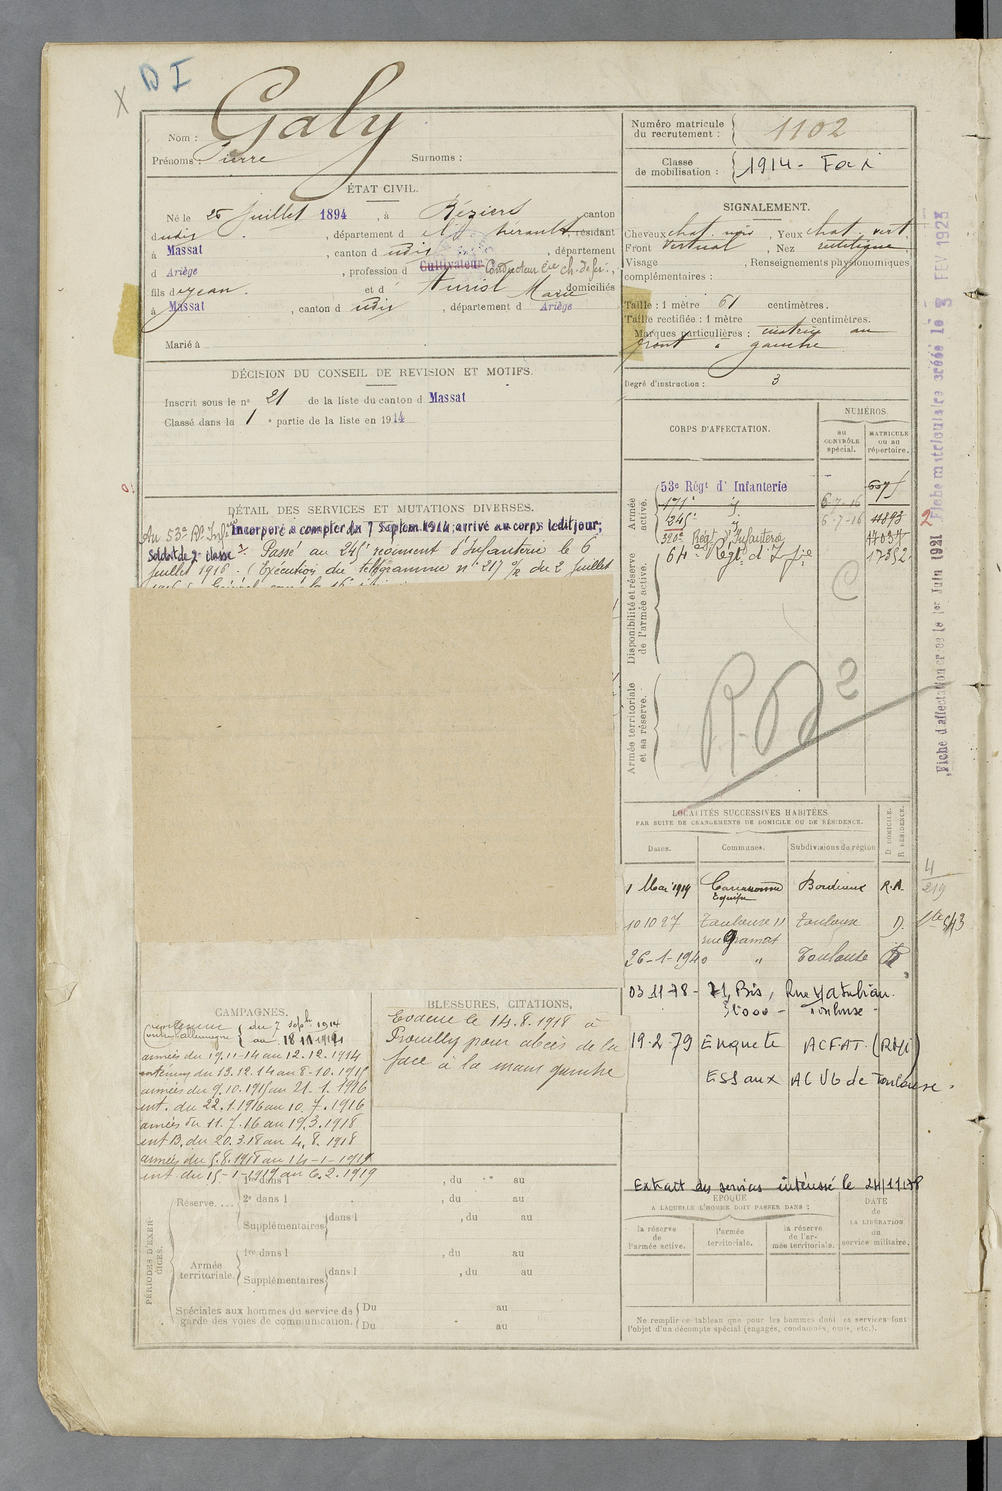 X D I
Nom : Galy
Prénoms : Pierre Surnoms :
ÉTAT CIVIL.
Né le 26 Juillet 1894 , à Béziers canton
dudit , département d Hérault, résidant
à Massat , canton d udit , département
d Ariège , profession d Cultivateur Conducteur Cie ch. de fer.,
fils de Jean. et d' Auriol Marie domiciliés
à Massat , canton d udit , département d Ariège
Marié à
DÉCISION DU CONSEIL DE REVISION ET MOTIFS.
Inscrit sous le n° 21 de la liste du canton d Massat
Classé dans la 1 e partie de la liste en 1914
DÉTAIL DES SERVICES ET MUTATIONS DIVERSES.
Au 53e Rt Infie Incorporé à compter du 7 Septem. 1914, arrivé au corps ledit jour,
Soldat de 2e classe. Passé au 245e régiment d'Infanterie le 6
Juillet 1916. (Exécution du télégramme n° 217 du 2 Juillet
CAMPAGNES.
contre
l'allemagne { du 7 sept 1914
au
armées du 19.11-14 au 12.12.1914
intérieur du 13.12.14 au 8-10.1915
armées du 9.10.1915 au 21.1.1916
int. du 22.1.1916 au 10.7.1916
armées du 11.7.16 au 19.3.1918
int B. du 20.3.18 au 4.8.1918
armées du 5.8.1918 au 14-1-1919
int du 15-1-1919 au 6.2.1919
BLESSURES, CITATIONS,
Evacué le 14.8.1918 à
Prouilly pour abcès de la
face à la main gauche
PÉRIODES D'EXERCICES.
Réserve.... 1re dans l , du au
2e dans l , du au
Supplémentaires dans l , du au
Armée territoriale. 1re dans l , du au
Supplémentaires dans l , du au
Spéciales aux hommes du service de garde des voies de communication. Du au
Du au
Numéro matricule du recrutement : 1102
Classe de mobilisation : 1914 - Foix
SIGNALEMENT.
Cheveux chat. noir , Yeux chat. vert.
Front vertical , Nez rectiligne
Visage , Renseignements physionomiques
complémentaires :
Taille : 1 mètre 61 centimètres.
Taille rectifiée : 1 mètre centimètres.
Marques particulières : cicatrice au
front à gauche
Degré d'instruction : 3
CORPS D'AFFECTATION.
NUMÉROS.
AU CONTRÔLE spécial.
MATRICULE OU AU répertoire.
Armée active.
53e Régt d' Infanterie
171e
245e 6-7-16 11093
320e Régt d'Infanterie 17037
64e Régt. d'Infie 17352
Disponibilité et réserve de l'armée active.
C
R.D 2
Armée territoriale et sa réserve.
LOCALITÉS SUCCESSIVES HABITÉES
PAR SUITE DE CHANGEMENTS DE DOMICILE OU DE RÉSIDENCE.
Dates. Communes. Subdivisions de région D. DOMICILE. R. RÉSIDENCE.
1 Mai 1919 Carcassonne Bordeaux R.A.
Equipe
10 10 27 Toulouse 11 Toulouse D.
rue Gramat
26-1-1940 " Toulouse
03 11 78 - 71 Bis, Rue Matabiau.
31000 - Toulouse -
19.2.79 Enquete ACFAT.
ESS aux ACVG de Toulouse.
Extrait des services intéressé le 24/11/78
ÉPOQUE
A LAQUELLE L'HOMME DOIT PASSER DANS :
la réserve de l'armée active.
l'armée territoriale.
la réserve de l'armée territoriale.
DATE de LA LIBÉRATION du service militaire.
Ne remplir ce tableau que pour les hommes dont les services font
l'objet d'un décompte spécial (engagés, condamnés, omis, etc.).
Fiche d'affectation créée le 1er Juin 1921
2
Fiche matriculaire créée le 3 FEV 1923
4
219